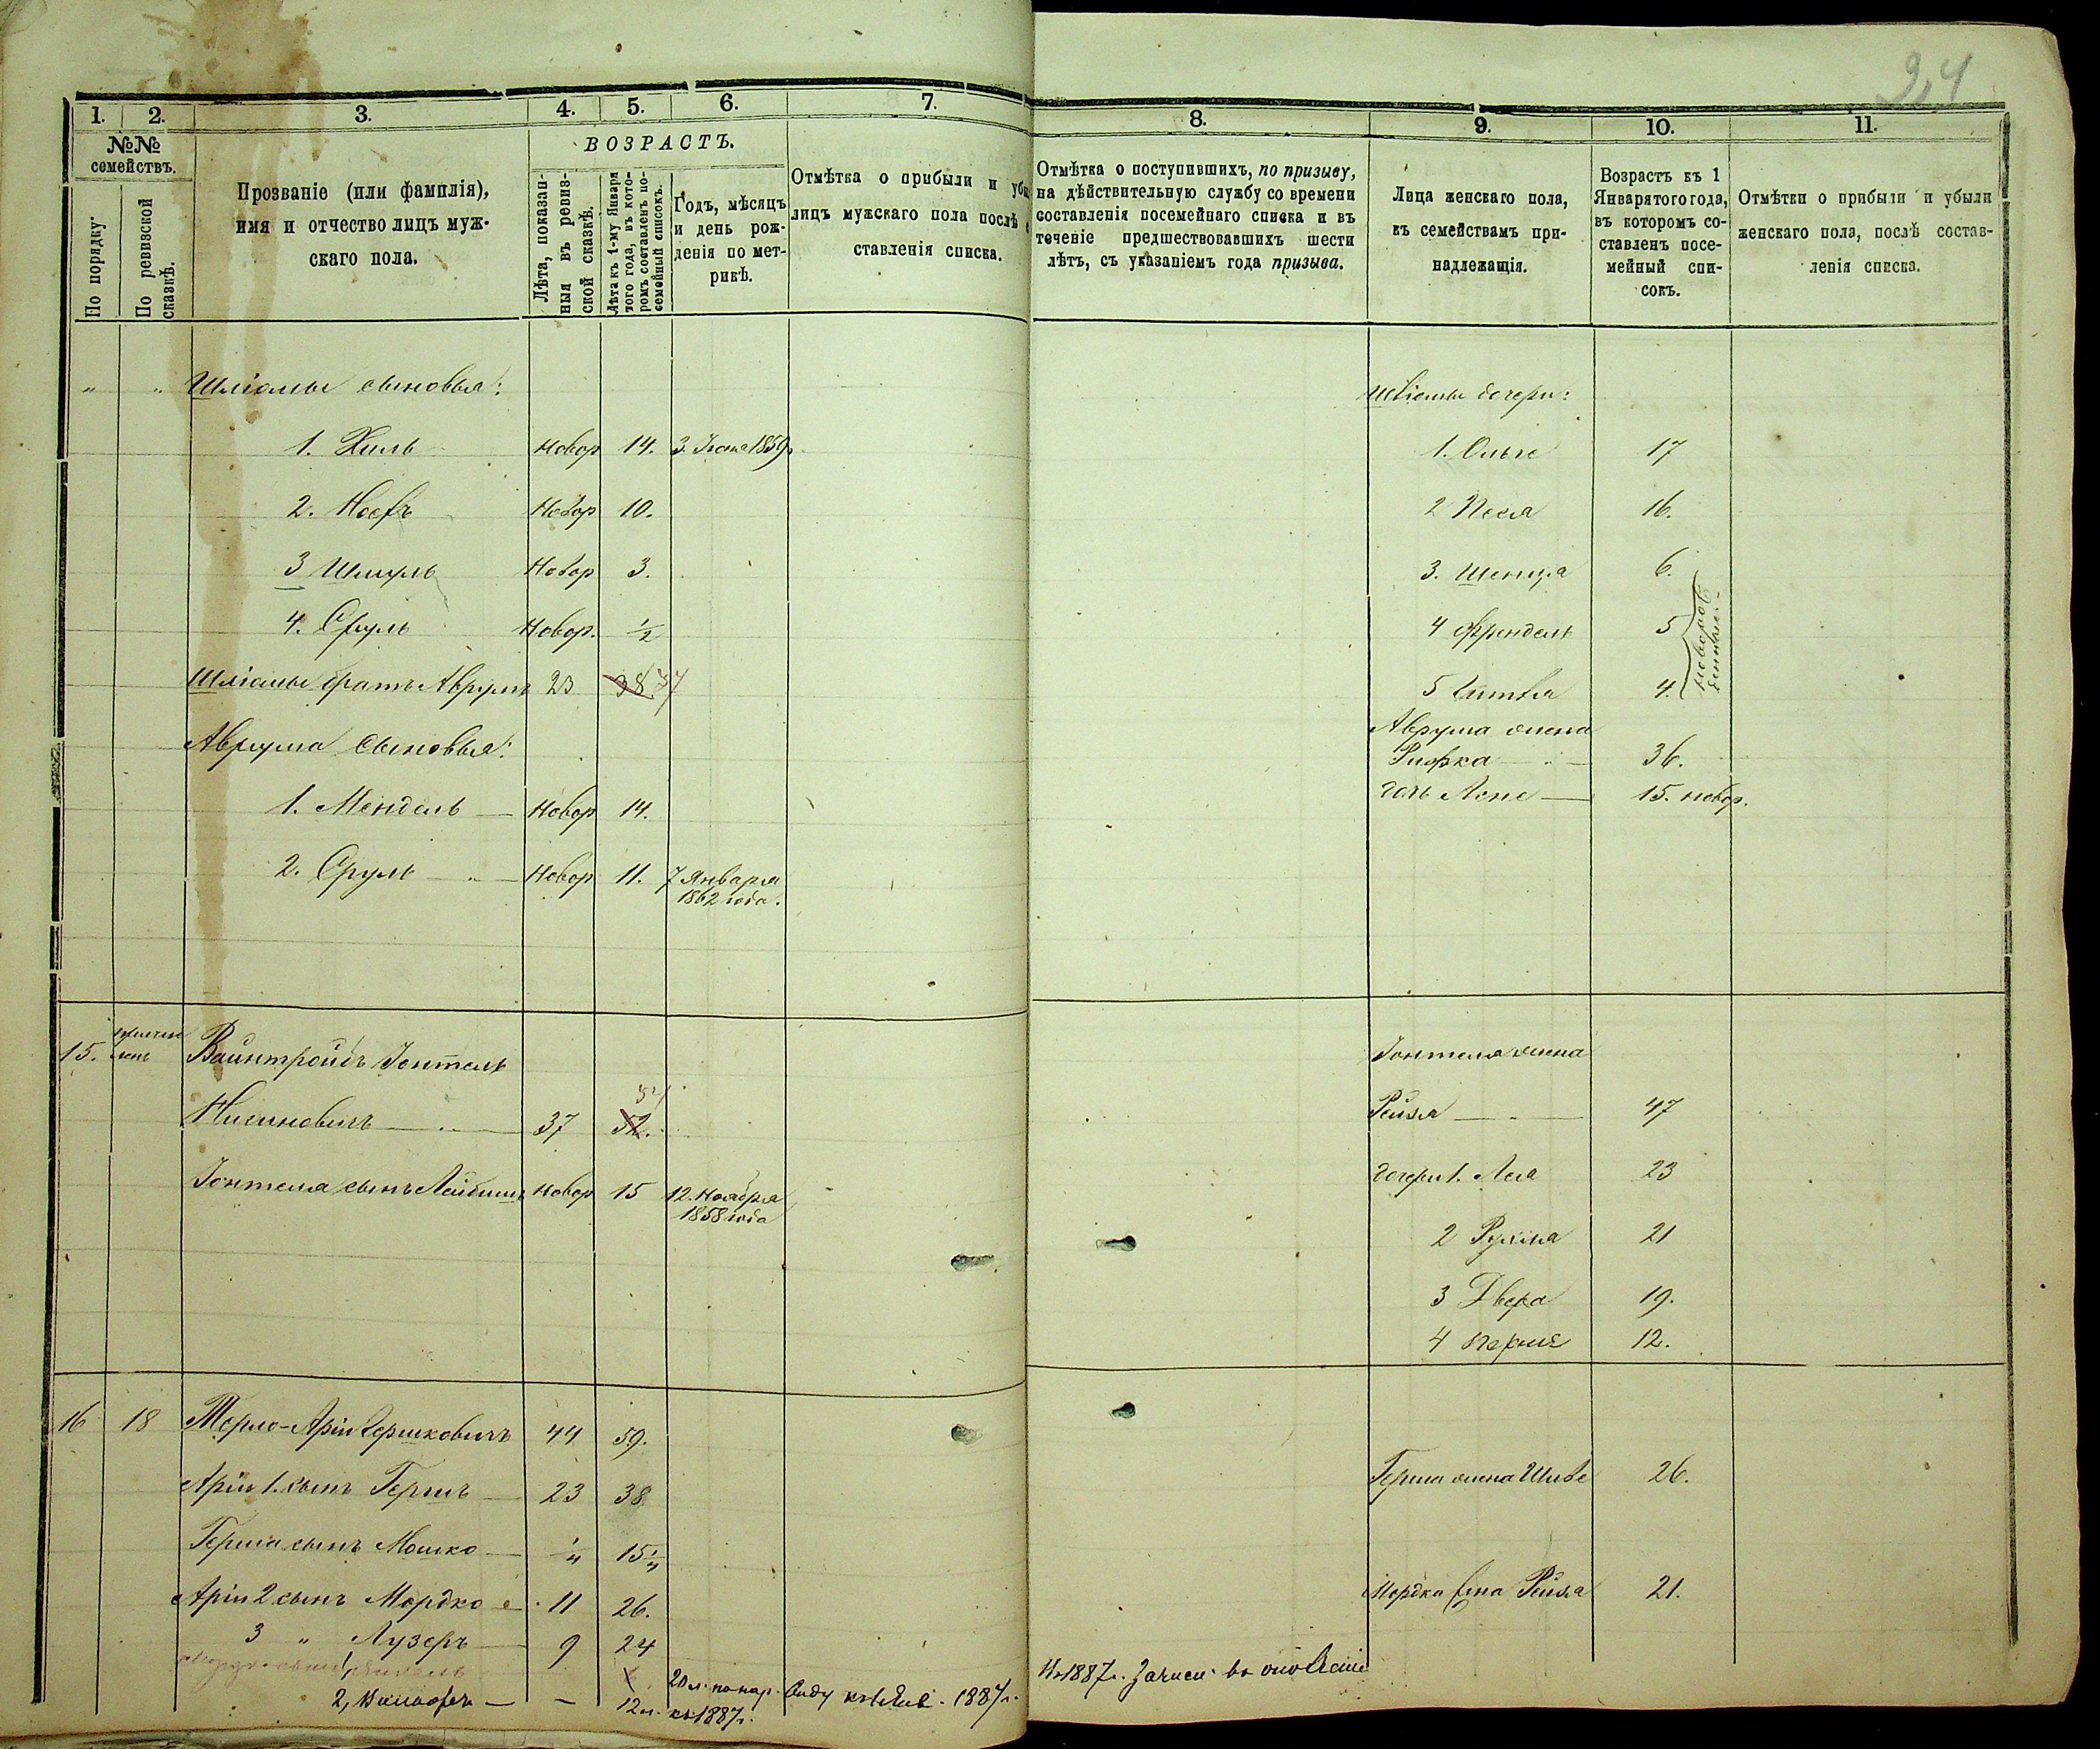 24
1. 2. 3. 4. 5. 6. 7.
№№ семействъ.
По порядку.
По ревизской сказкѣ.
Прозваніе (или фамилія),
имя и отчество лицъ муж-
скаго пола.
ВОЗРАСТЪ.
Лѣта, показан-
ныя въ ревиз-
ской сказкѣ.
Лѣта къ 1-му Января
того года, въ кото-
ромъ составленъ по-
семейный списокъ.
Годъ, мѣсяцъ
и день рож-
денія по мет-
рикѣ.
Отмѣтка о прибыли и
лицъ мужскаго пола послѣ
ставленія списка.
" " Шліомы сыновья:
1. Хиль Новор 14. 3. Іюня 1859
2. Иосфъ Новор 10.
3 Шмуль Новор 3.
4. Сруль Новор. ½
Шліомы братъ Аврумъ 23 38
Аврума сыновья:
1. Мендель — Новор 14.
2. Сруль — Новор 11. 7 Января
1862 года.
15. Вайнтройбъ Іонтель
Нисиновичъ — 37 52.
Іонтеля сынъ Лейбишъ Новор 15 12. Ноября
1858 года
16 18 -Арія Гершковичъ 44 59.
Арія 1. сынъ Гершъ — 23 38
Герша сынъ Мошко — 15
Арія 2 сынъ Мордко 11 26.
3 " Лузеръ — 9 24
2, — — 12 л. 20 л. по нар. къ 1887 г. 1887 г.
8. 9. 10. 11.
Отмѣтка о поступившихъ, по призыву,
на дѣйствительную службу со времени
составленія посемейнаго списка и въ
теченіе предшествовавшихъ шести
лѣтъ, съ указаніемъ года призыва.
Лица женскаго пола,
къ семействамъ при-
надлежащія.
Возрастъ къ 1
Января того года,
въ которомъ со-
ставленъ посе-
мейный спи-
сокъ.
Отмѣтки о прибыли и убыли
женскаго пола, послѣ состав-
ленія списка.
Шліомы дочери:
1. 17
2 Песя 16.
3. Шейнца 6.
4 Фрейдель 5
5 4.
новорожденныя
Аврума жена
Рифка — 36.
дочь — 15. новор.
Іонтеля жена
Рейзя — 47
дочери 1. Лея 23
2 Рухля 21
3 Двера 19.
4 Перля 12.
Герша жена Шиве 26.
Мордки жена Рейзя 21.
1887 г.